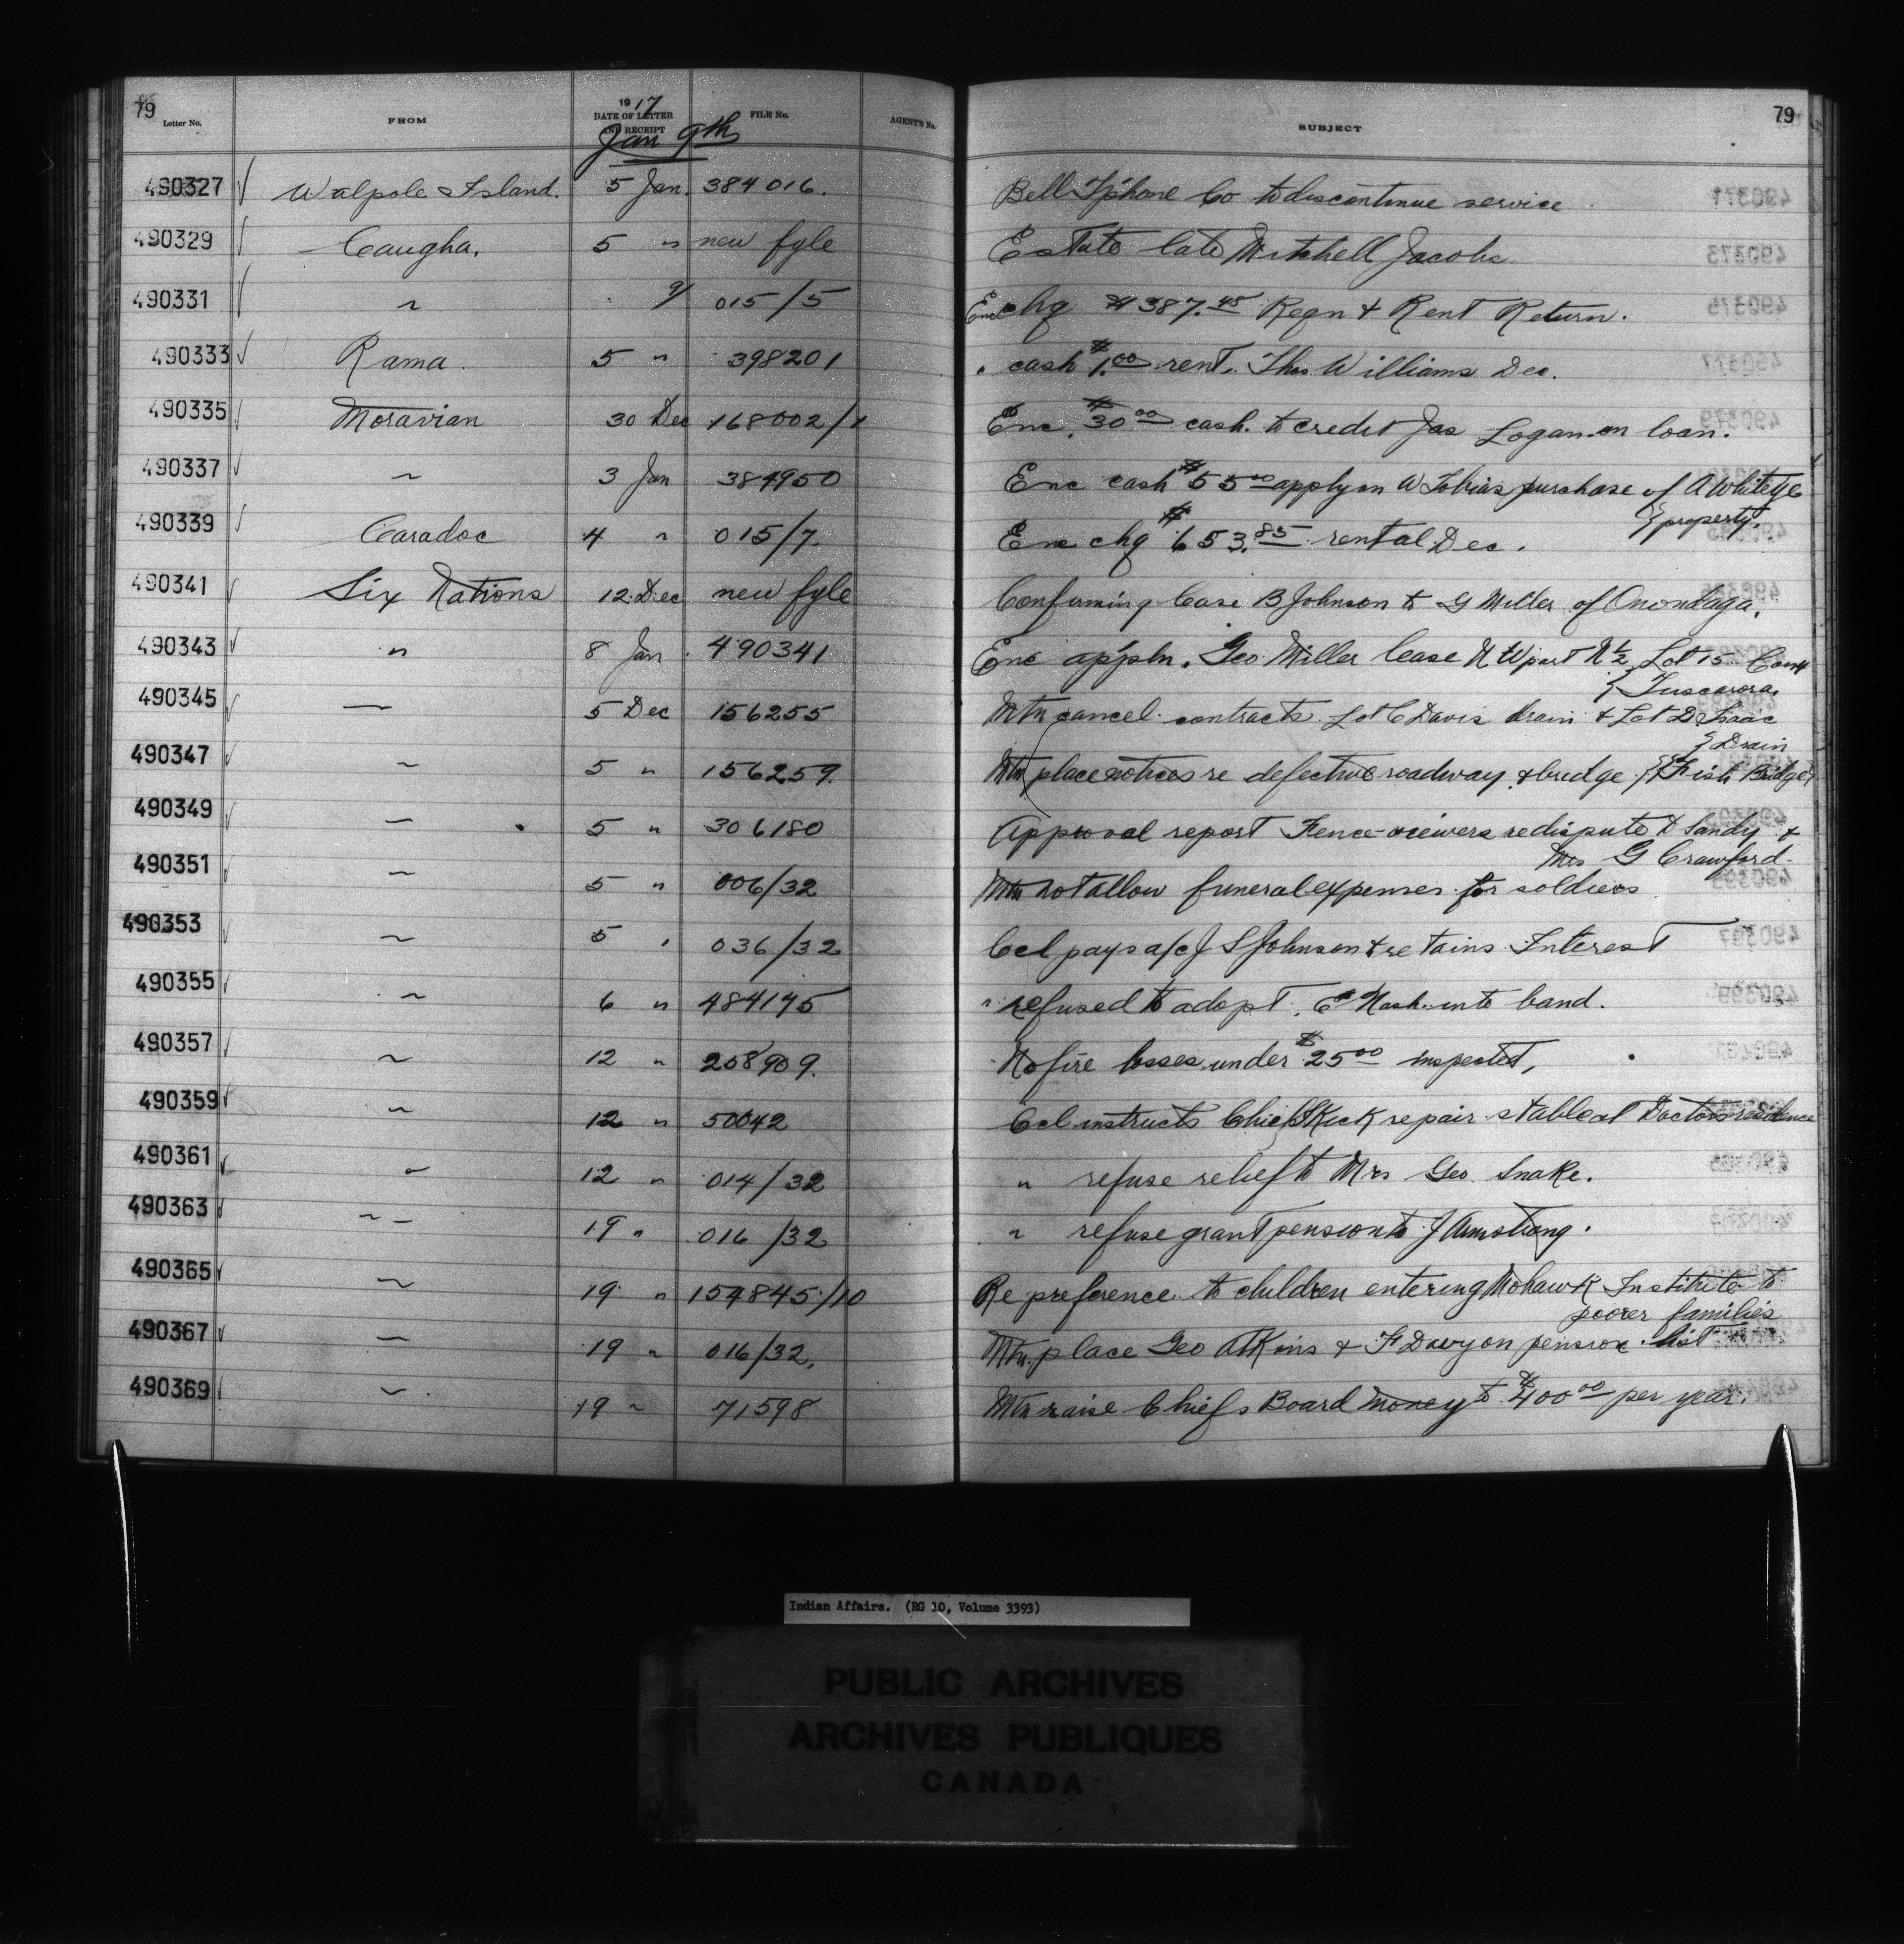 79 79
Letter No. FROM 1917 DATE OF LETTER AND RECEIPT FILE No. AGENT'S No. SUBJECT
Jan 9th
490327 Walpole Island. 5 Jan. 384016. Bell T'phone Co to discontinue service
490329 Caugha. 5 " new fyle Estate late Mitchell Jacobs.
490331 " 9/ 015/5 Enc chq $387.48 Reqn & Rent Return.
490333 Rama. 5 " 398201 " cash $1.00 rent. Thos Williams Dec.
490335 Moravian 30 Dec 168002/1 Enc. $30 00 cash. to credit Jas Logan on loan.
490337 " 3 Jan 384950 Enc cash $55 00 apply on W Tobias purchase of A Whiteeye
property.
490339 Caradoc 4 " 015/7. Enc chq $653.85 rental Dec.
490341 Six Nations 12 Dec new fyle Confirming lease B Johnson to G Miller of Onondaga.
490343 " 8 Jan. 490341 Enc app'ln. Geo Miller lease N W part N ½ Lot 15 Con 4
Tuscarora.
490345 — 5 Dec 156255 Mtn cancel contracts Lot C Davis drain & Lot D Isaac
Drain
490347 " 5 " 156259. Mtn place notices re defective roadway & bridge. {Fish Bridge}
490349 — 5 " 306180 Approval report Fence-viewers re dispute D Sandy &
Mrs G Crawford
490351 — 5 " 006/32 Mtn not allow funeral expenses for soldiers
490353 " 5 " 036/32 Ccl pays a/c J S Johnson & retains Interest
490355 " 6 " 484145 " refused to adopt. E Nash into band.
490357 " 12 " 258909. No fire losses under $25 00 inspected,
490359 " 12 " 50042 Ccl instructs Chief Kick repair stable at Doctors residence
490361 " 12 " 014/32 " refuse relief to Mrs Geo Snake.
490363 " — 19 " 016/32 " refuse grant pension to J Armstrong.
490365 " 19 " 154845/10 Re preference to children entering Mohawk Institute to
poorer families
490367 — 19 " 016/32, Mtn. place Geo Atkins & F Davy on pension list
490369 " 19 " 71598 Mtn raise Chiefs Board money to $400 00 per year.
Indian Affairs. (RG 10, Volume 3393)
PUBLIC ARCHIVES
ARCHIVES PUBLIQUES
CANADA